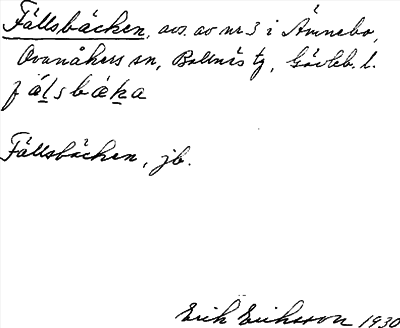 Fällsbäcken, avs. av nr 3 i Ämnebo,
Ovanåkers sn, Bollnäs tg, Gävleb. l.
fä́lsbæka
Fällsbäcken, jb.
Erik Eriksson 1930